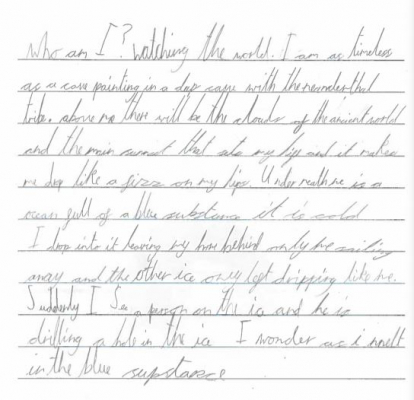 Who am I? Watching the world. I am as timeless
as a cave painting in a deep cave with the neanderthal
tribe. above me there will be the clouds of the ancient world
and the main sunset that my and it makes
me drop like a fizz on my lips. Underneath me is a
ocean full of a blue substance it is cold
I drop into it leaving my home behind only me sailing
away and the other ice only left dripping like me.
Suddenly I See a person on the ice and he is
drilling a hole in the ice I wonder as i melt
in the blue supstance